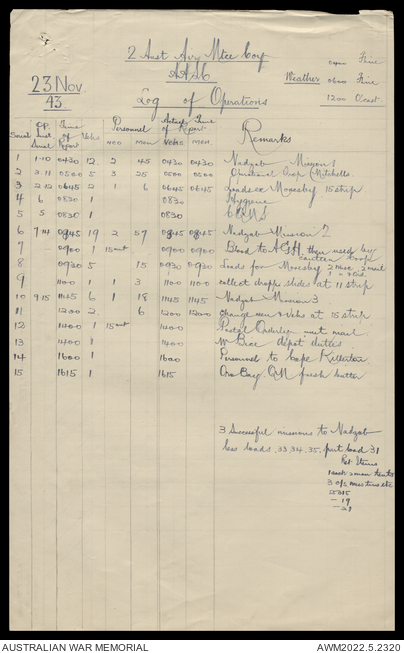 2 Aust Air Mtce Coy
AASC
Log of Operations
23 Nov
43
Weather
Fine
0600 Fine
1200 O'cast
Serial Op. Inst Serial Time of Report Vehs Personnel NCO men Actual Time of Report Vehs men Remarks
1 1-10 0430 12 2 45 0430 0430 Nadzab Mission 1
2 2.11 0500 5 3 25 0500 0500 Operational Drop (Mitchells
3 2.12 0645 2 1 6 0645 0645 Loads ex Moresby 15 strip
4 6 0830 1 0830 Hygiene
5 5 0830 1 0830
6 7 14 0845 19 2 57 0845 0845 Nadzab Mission 2
7 - 0900 1 0900 0900 Blood to AGH then used by canteen
8 0930 5 15 0930 0930 Loads for Moresby
9 1100 1 1 3 1100 1100 collect at 11 strip
10 9 15 1145 6 1 18 1145 1145 Nadzab Mission 3
11 1200 2 6 1200 1200 Change men & vehs at 15 strip
12 1400 1 1400 Postal Orderlies unit mail
13 1400 1 1400 depot duties
14 1600 1 1600 Personnel to Cape Killerton
15 1615 1 1615 QM fresh butter
3 Successful missions to Nadzab
less loads 33.34.35. part load 31
3
- 19
- 21
AUSTRALIAN WAR MEMORIAL
AWM2022.5.2320